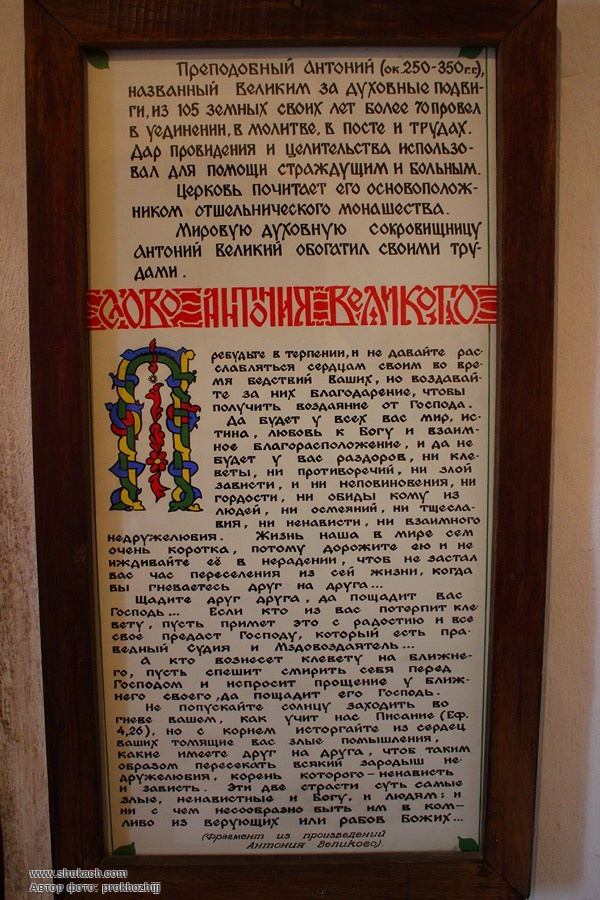 Преподобный Антоний (ок.250-350г.г),
названный Великим за духовные подви-
ги, из 105 земных своих лет более 70 провел
в уединении, в молитве, в посте и трудах.
Дар провидения и целительства использо-
вал для помощи страждущим и больным.
Церковь почитает его основополож-
ником отшельнического монашества.
Мировую духовную сокровищницу
Антоний Великий обогатил своими тру-
дами.
Слово Антония Великого
Пребудьте в терпении, и не давайте рас-
слабляться сердцам своим во вре-
мя бедствий Ваших, но воздавай-
те за них благодарение, чтобы
получить воздаяние от Господа.
Да будет у всех вас мир, ис-
тина, любовь к Богу и взаим-
ное благорасположение, и да не
будет у вас раздоров, ни кле-
веты, ни противоречий, ни злой
зависти, и ни неповиновения, ни
гордости, ни обиды кому из
людей, ни осмеяний, ни тщесла-
вия, ни ненависти, ни взаимного
недружелюбия. Жизнь наша в мире сем
очень коротка, потому дорожите ею и не
иждивайте её в нерадении, чтоб не застал
вас час переселения из сей жизни, когда
вы гневаетесь друг на друга...
Щадите друг друга, да пощадит вас
Господь... Если кто из вас потерпит кле-
вету, пусть примет это с радостию и все
свое предаст Господу, который есть пра-
ведный Судия и Мздовоздаятель...
А кто вознесет клевету на ближне-
го, пусть спешит смирить себя перед
Господом и испросит прощение у ближ-
него своего, да пощадит его Господь.
Не попускайте солнцу заходить во
гневе вашем, как учит нас Писание (Еф.
4,26), но с корнем исторгайте из сердец
ваших томящие вас злые помышления,
какие имеете друг на друга, чтоб таким
образом пересекать всякий зародыш не-
дружелюбия, корень которого - ненависть
и зависть. Эти две страсти суть самые
злые, ненавистные и Богу, и людям; и
ни с чем несообразно быть им в ком-
либо из верующих или рабов Божих...
(Фрагмент из произведений
Антония Великово)
www.shukach.com
Автор фото: prokhozhijj